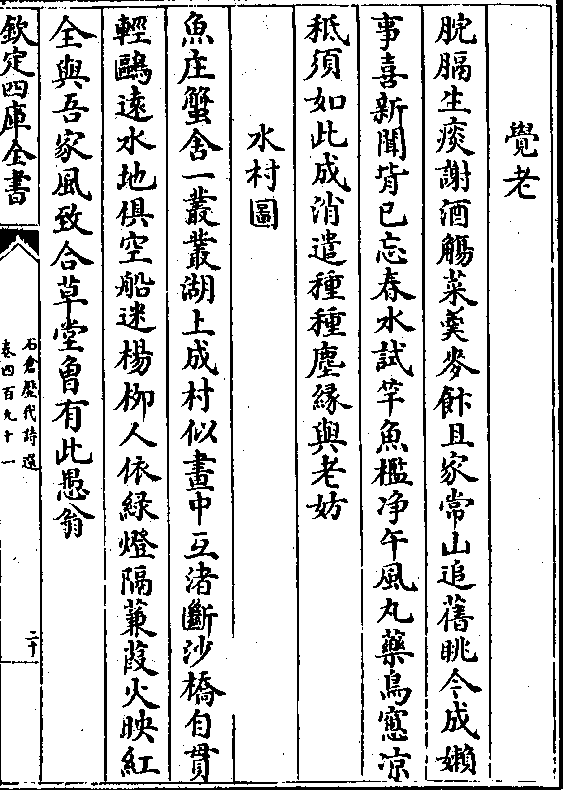 覺老
脘膈生痰謝酒觴菜羮麥餅且家常山追舊眺今成嬾
事喜新聞背已忘春水試竿魚檻净午風丸藥鳥窓凉
秪須如此成消遣種種塵縁與老妨
水村圖
魚庄蟹舍一叢叢湖上成村似畫中互渚斷沙橋自貫
輕鷗逺水地俱空船迷楊柳人依緑燈隔蒹葭火映紅
全與吾家風致合草堂曾有此愚翁
欽定四庫全書
石倉歴代詩選
卷四百九十一
二十